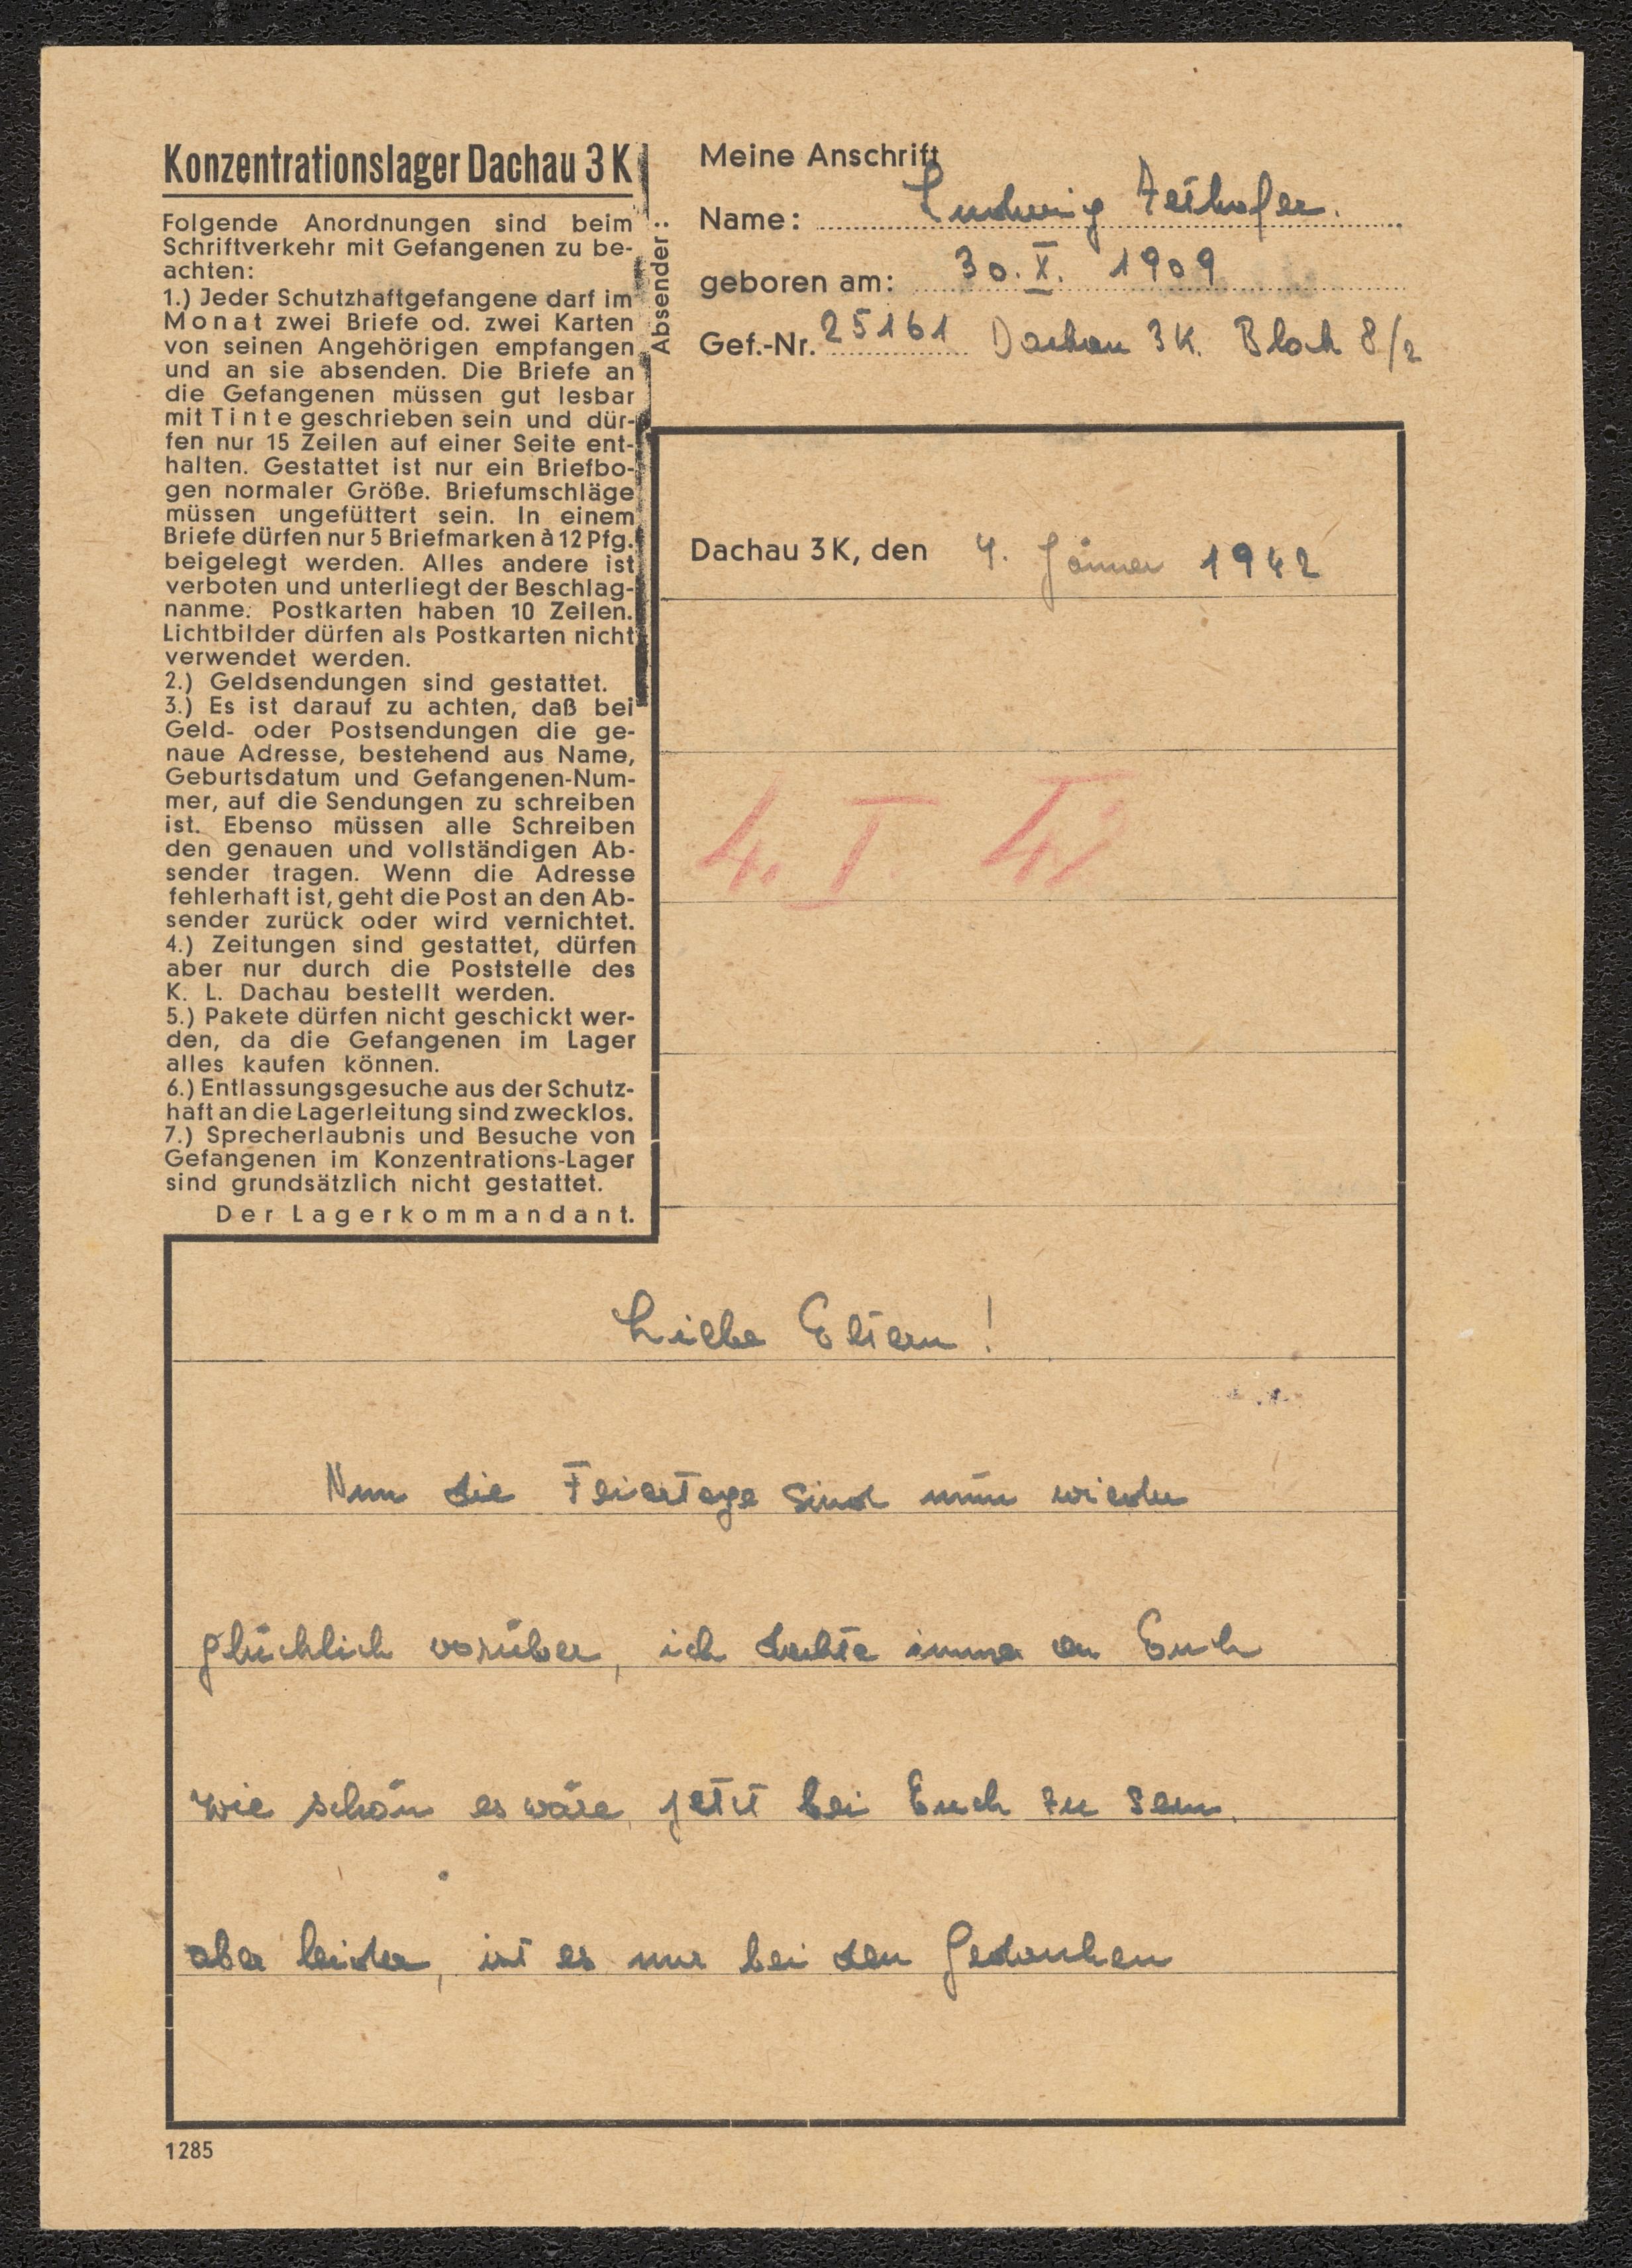 Konzentrationslager Dachau 3 K
Folgende Anordnungen sind beim
Schriftverkehr mit Gefangenen zu be-
achten:
1.) Jeder Schutzhaftgefangene darf im
Monat zwei Briefe od. zwei Karten
von seinen Angehörigen empfangen
und an sie absenden. Die Briefe an
die Gefangenen müssen gut lesbar
mit Tinte geschrieben sein und dür-
fen nur 15 Zeilen auf einer Seite ent-
halten. Gestattet ist nur ein Briefbo-
gen normaler Größe. Briefumschläge
müssen ungefüttert sein. In einem
Briefe dürfen nur 5 Briefmarken à 12 Pfg.
beigelegt werden. Alles andere ist
verboten und unterliegt der Beschlag-
nanme. Postkarten haben 10 Zeilen.
Lichtbilder dürfen als Postkarten nicht
verwendet werden.
2.) Geldsendungen sind gestattet.
3.) Es ist darauf zu achten, daß bei
Geld- oder Postsendungen die ge-
naue Adresse, bestehend aus Name,
Geburtsdatum und Gefangenen-Num-
mer, auf die Sendungen zu schreiben
ist. Ebenso müssen alle Schreiben
den genauen und vollständigen Ab-
sender tragen. Wenn die Adresse
fehlerhaft ist, geht die Post an den Ab-
sender zurück oder wird vernichtet.
4.) Zeitungen sind gestattet, dürfen
aber nur durch die Poststelle des
K. L. Dachau bestellt werden.
5.) Pakete dürfen nicht geschickt wer-
den, da die Gefangenen im Lager
alles kaufen können.
6.) Entlassungsgesuche aus der Schutz-
haft an die Lagerleitung sind zwecklos.
7.) Sprecherlaubnis und Besuche von
Gefangenen im Konzentrations-Lager
sind grundsätzlich nicht gestattet.
Der Lagerkommandant.
Absender:
Meine Anschrift
Name: Ludwig
geboren am: 30. X. 1909
Gef.-Nr. 25161 Dachau 3 K. Block 8/2
Dachau 3 K, den 4. Jänner 1942
4. I. 42
Liebe Eltern!
Nun die Feiertage sind nun wieder
glücklich vorüber, ich dachte immer an Euch
wie schön es wäre, jetzt bei Euch zu sein,
aber leider, ist es nur bei den Gedanken
1285